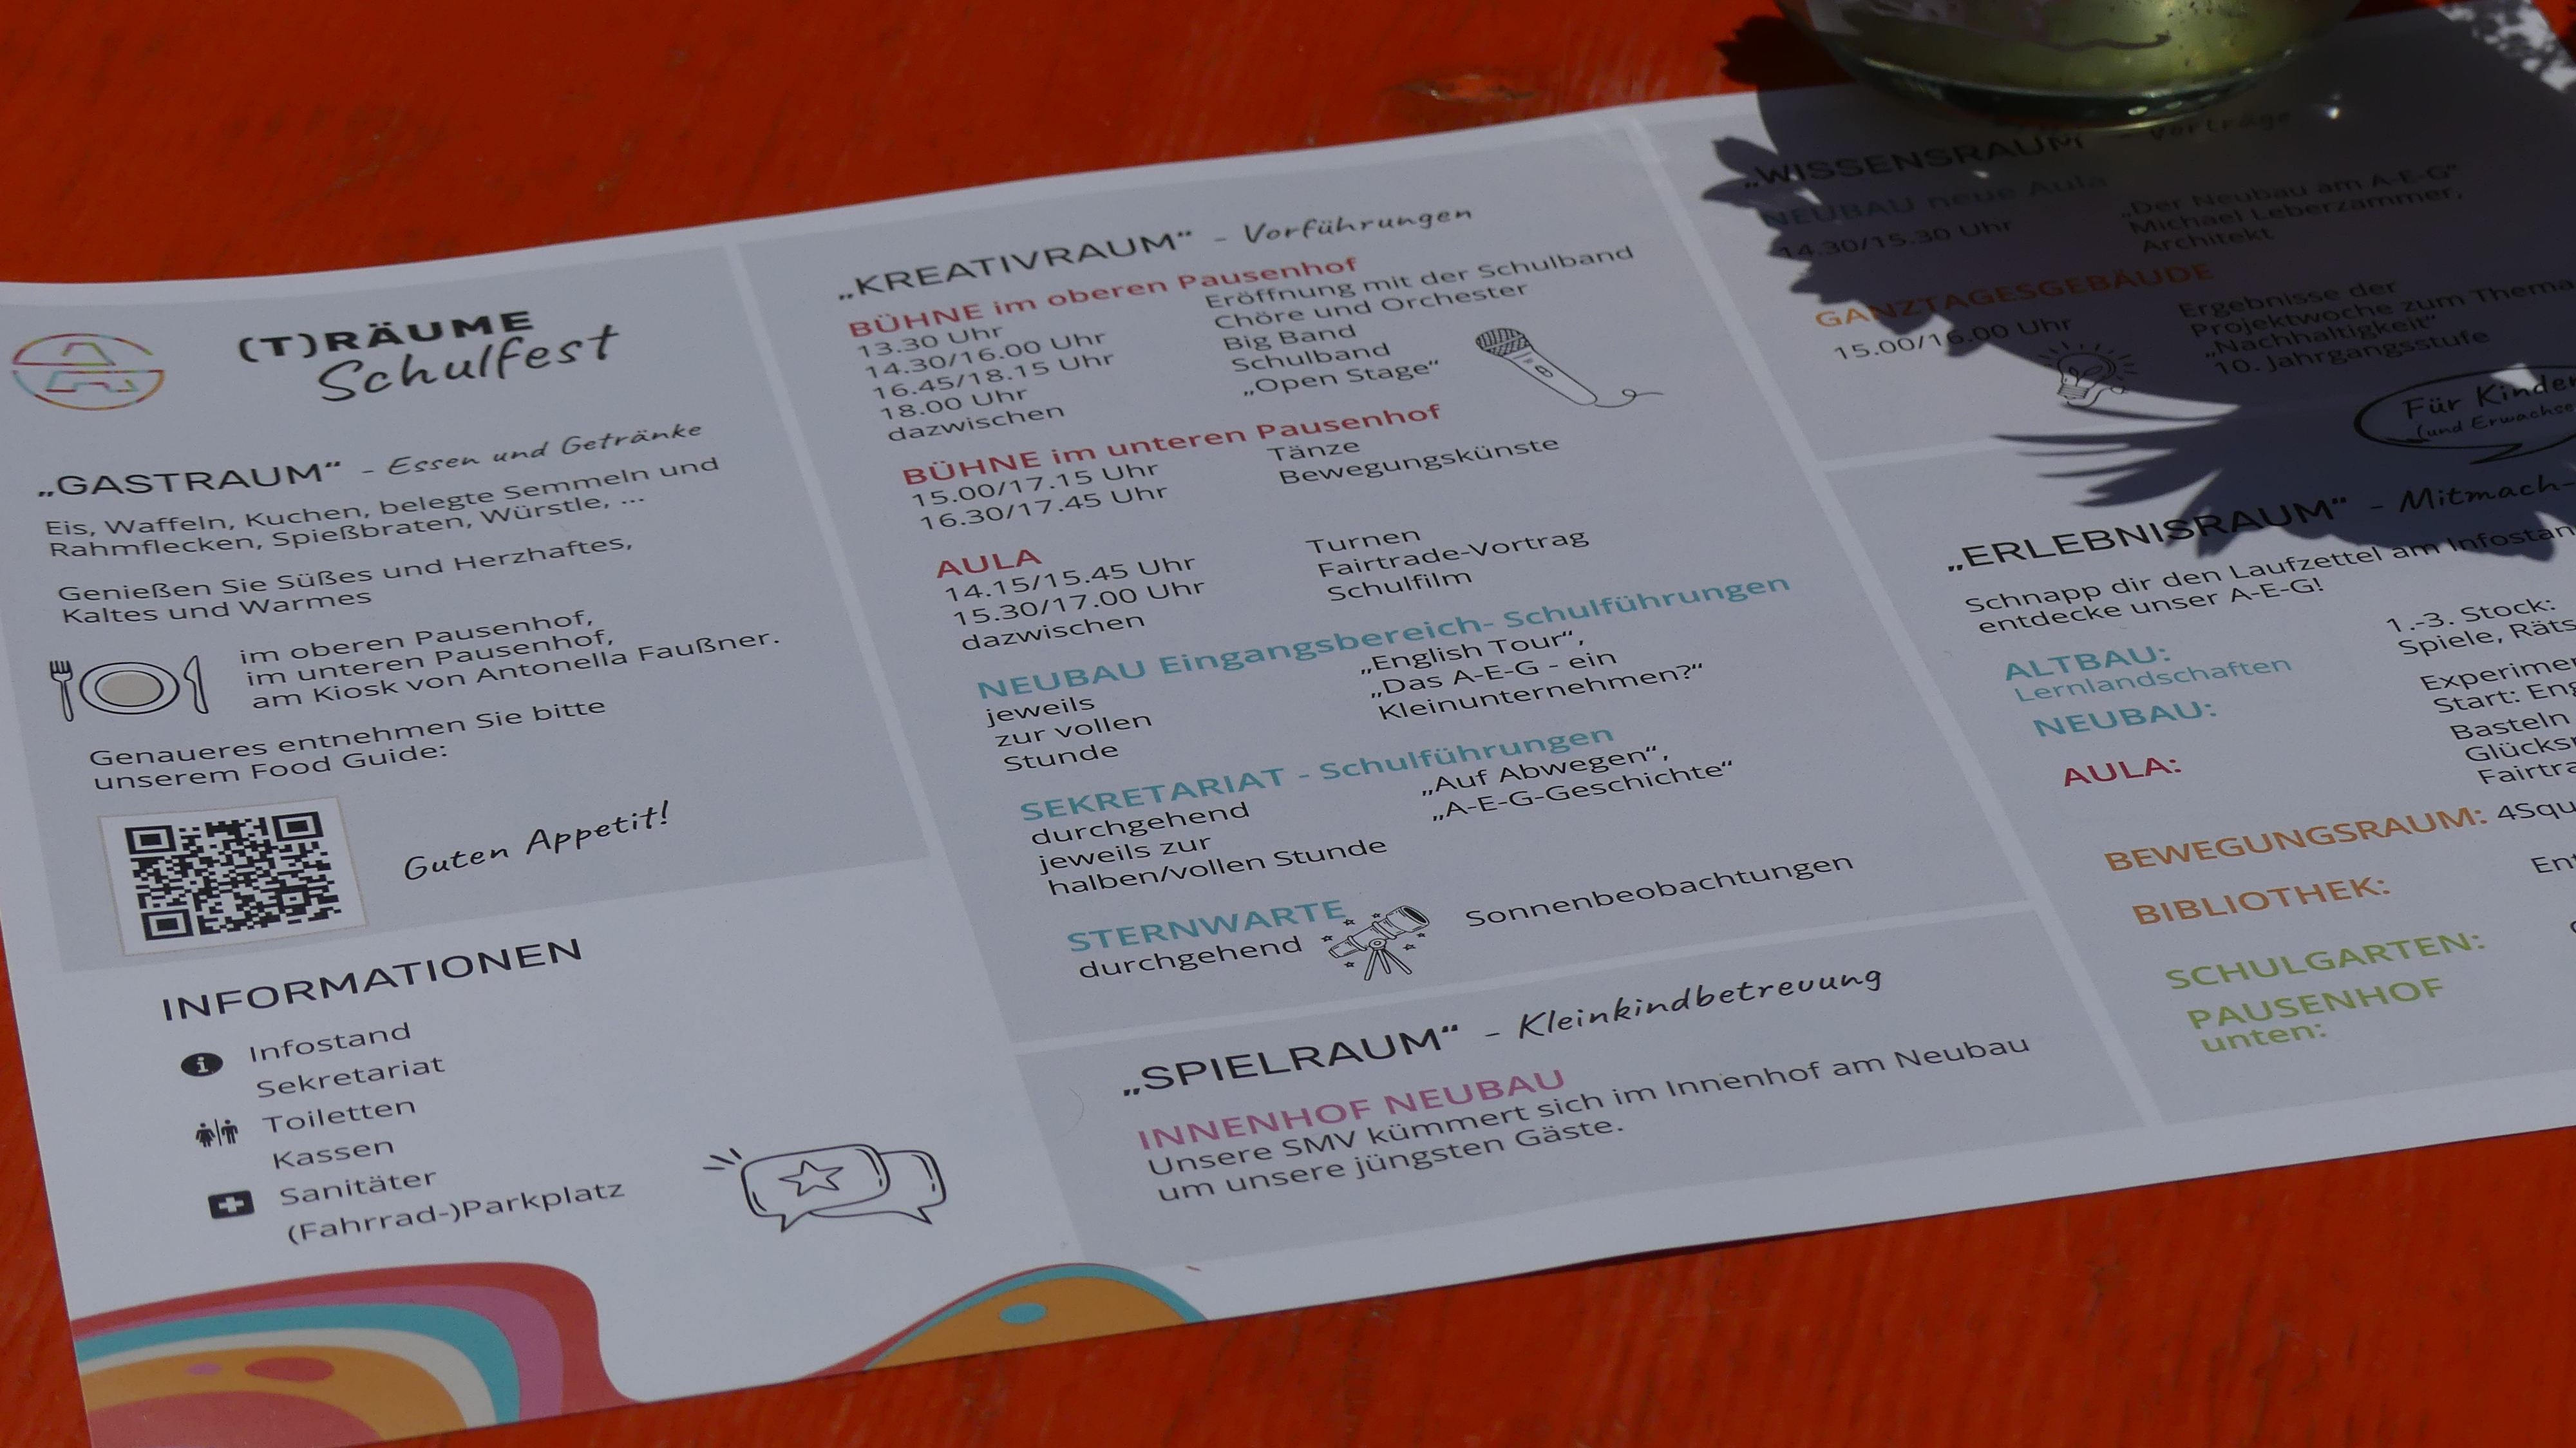 (T)RÄUME
Schulfest
„GASTRAUM“ - Essen und Getränke
Eis, Waffeln, Kuchen, belegte Semmeln und
Rahmflecken, Spießbraten, Würstle, ...
Genießen Sie Süßes und Herzhaftes,
Kaltes und Warmes
im oberen Pausenhof,
im unteren Pausenhof,
am Kiosk von Antonella Faußner.
Genaueres entnehmen Sie bitte
unserem Food Guide:
Guten Appetit!
INFORMATIONEN
Infostand
Sekretariat
Toiletten
Kassen
Sanitäter
(Fahrrad-)Parkplatz
„KREATIVRAUM“ - Vorführungen
BÜHNE im oberen Pausenhof
13.30 Uhr Eröffnung mit der Schulband
14.30/16.00 Uhr Chöre und Orchester
16.45/18.15 Uhr Big Band
18.00 Uhr Schulband
dazwischen „Open Stage“
BÜHNE im unteren Pausenhof
15.00/17.15 Uhr Tänze
16.30/17.45 Uhr Bewegungskünste
AULA
14.15/15.45 Uhr Turnen
15.30/17.00 Uhr Fairtrade-Vortrag
dazwischen Schulfilm
NEUBAU Eingangsbereich- Schulführungen
jeweils „English Tour“,
zur vollen „Das A-E-G - ein
Stunde Kleinunternehmen?“
SEKRETARIAT - Schulführungen
durchgehend „Auf Abwegen“,
jeweils zur „A-E-G-Geschichte“
halben/vollen Stunde
STERNWARTE
durchgehend Sonnenbeobachtungen
„SPIELRAUM“ - Kleinkindbetreuung
INNENHOF NEUBAU
Unsere SMV kümmert sich im Innenhof am Neubau
um unsere jüngsten Gäste.
„WISSENSRAUM“ - Vorträge
NEUBAU neue Aula
14.30/15.30 Uhr „Der Neubau am A-E-G“
Michael Leberzammer,
Architekt
GANZTAGESGEBÄUDE
15.00/16.00 Uhr Ergebnisse der
Projektwoche zum Thema
„Nachhaltigkeit“
10. Jahrgangsstufe
Für Kinder
(und Erwachse
„ERLEBNISRAUM“ - Mitmach-
Schnapp dir den Laufzettel am Infostan
entdecke unser A-E-G!
ALTBAU: 1.-3. Stock:
Lernlandschaften Spiele, Räts
NEUBAU: Experime
Start: Eng
AULA: Basteln
Glücks
Fairtra
BEWEGUNGSRAUM: 4Squ
BIBLIOTHEK: Ent
SCHULGARTEN:
PAUSENHOF
unten: